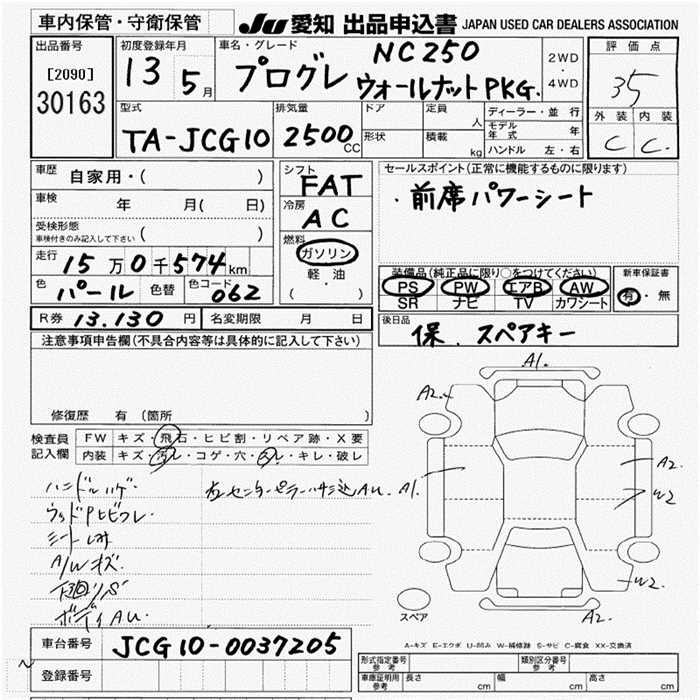 車内保管・守衛保管
JU 愛知 出品申込書 JAPAN USED CAR DEALERS ASSOCIATION
出品番号
[2090]
30163
初度登録年月
13 5月
車名・グレード
プログレ NC250
ウォールナットPKG.
2WD
・
4WD
評価点
35
外装 内装
C C.
型式
TA-JCG10
排気量
2500CC
ドア
形状
定員
人
積載
kg
ディーラー・並行
モデル年式 年
ハンドル 左・右
車歴 自家用・( )
車検 年 月( 日)
受検形態
車検付きのみ記入して下さい ( )
走行 15万0千574km
色 パール 色替 色コード 062
シフト
FAT
冷房
AC
燃料
ガソリン
軽油
( )
セールスポイント(正常に機能するものに限ります)
・前席パワーシート
装備品(純正品に限り○をつけてください)
PS PW エアB AW
SR ナビ TV カワシート
新車保証書
有・無
R券 13.130円 名変期限 月 日
後日品
保、スペアキー
注意事項申告欄(不具合内容等は具体的に記入して下さい)
修復歴 有(箇所 )
検査員記入欄
FW キズ・飛石・ヒビ割・リペア跡・X要
内装 キズ・汚レ・コゲ・穴・スレ・キレ・破レ
ハンドルハゲ
ウッドPヒビワレ
シート
A/Wキズ
下廻り
ボディAU.
右センターピラー
A1.
A2.
A1.
A2
W2
W2.
A2.
スペア
A-キズ E-エクボ U-凹み W-補修跡 S-サビ C-腐食 XX-交換済
車台番号 JCG10-0037205
登録番号
形式指定番号 参考
類別区分番号 参考
車庫証明用 参考 長さ cm 幅 cm 高さ cm